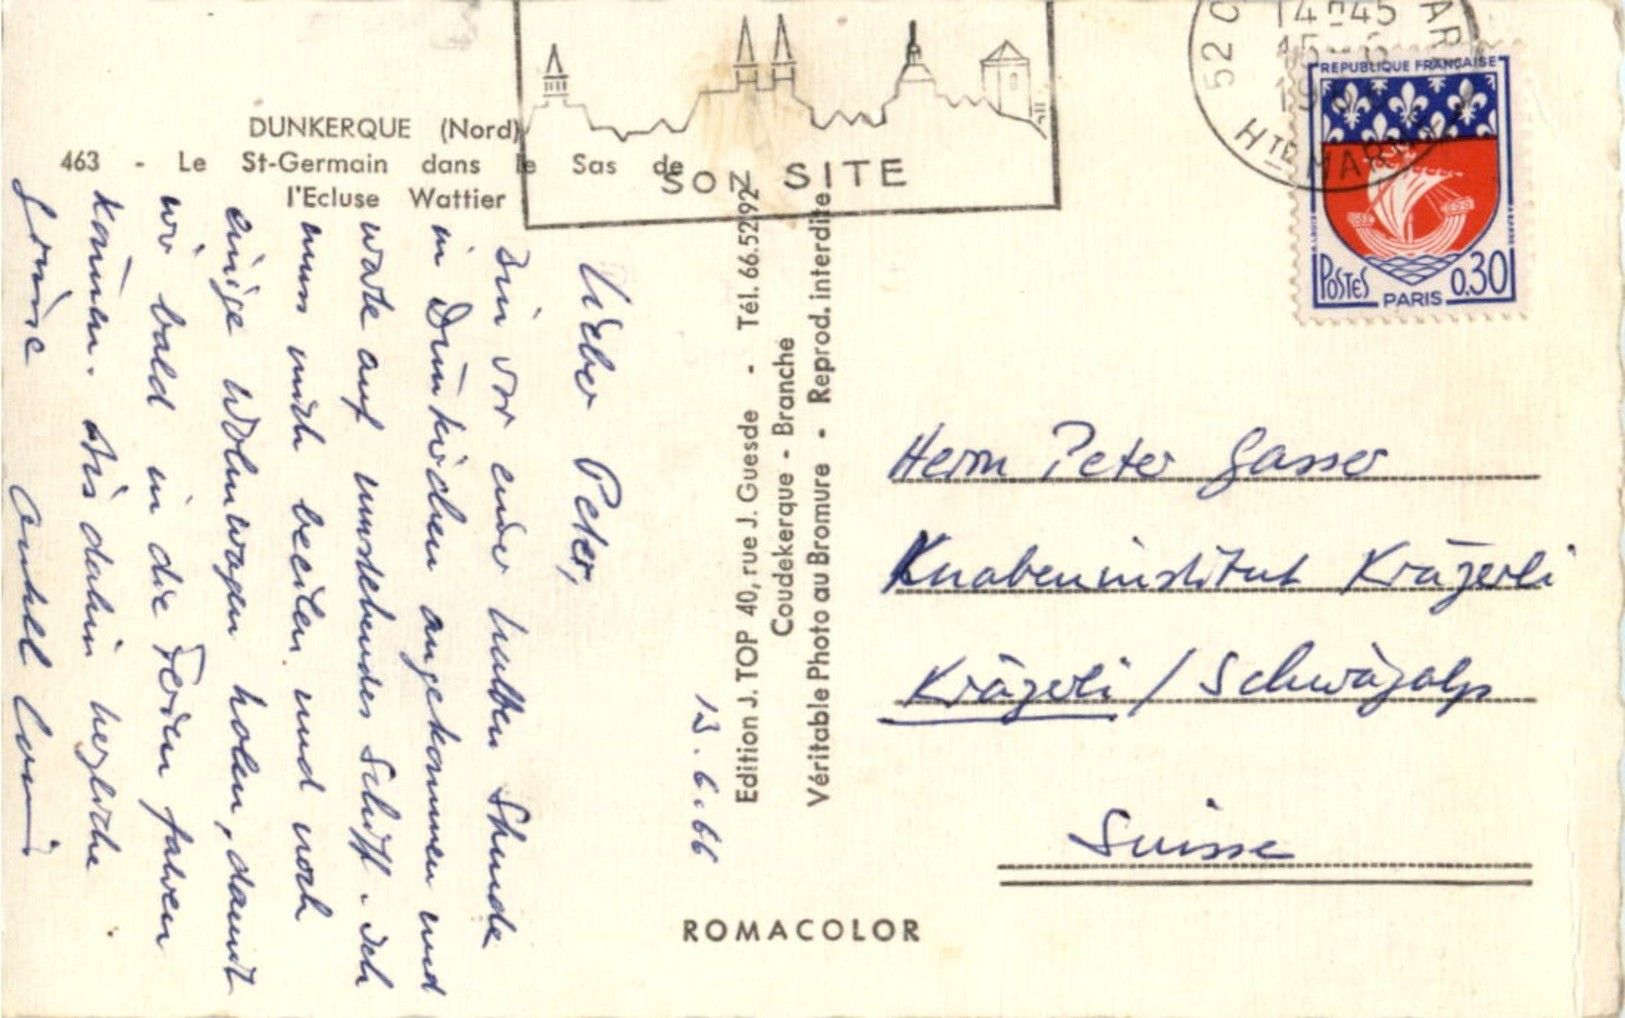 DUNKERQUE (Nord)
463 - Le St-Germain dans le Sas de
l'Ecluse Wattier
SON SITE
14H45
15-6
52 C
Hte MARNE
REPUBLIQUE FRANÇAISE
POSTES
PARIS
0.30
13.6.66
Lieber Peter,
Bin vor einer halben Stunde
in Dünkirchen angekommen und
warte auf umstehendes Schiff. Ich
muss mich beeilen und noch
einige Wohnwagen holen, damit
wir bald in die Ferien fahren
können. Bis dahin herzliche
Grüsse Onkel
Edition J. TOP 40, rue J. Guesde - Tél. 66.52.92
Coudekerque - Branche
Véritable Photo au Bromure - Reprod. interdite
Herrn Peter Gasser
Knabeninstitut Kräzerli
Kräzerli / Schwägalp
Suisse
ROMACOLOR